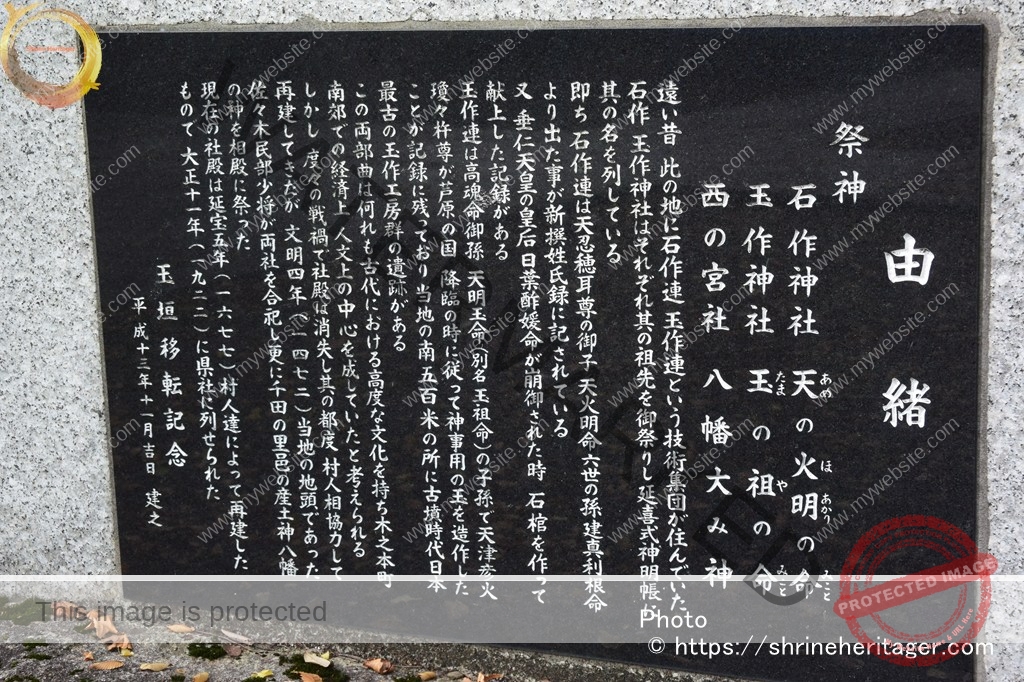 由緒
祭神
石作神社 天の火明の命
あめ ほ あかり みこと
玉作神社 玉の祖の命
たま や みこと
西の宮社 八幡大み神
遠い昔 此の地に石作連 玉作連という技術集団が住んでいた
石作 玉作神社はそれぞれ其の祖先を御祭りし延喜式神明帳に
其の名を列している
即ち 石作連は天忍穂耳尊の御子 天火明命 六世の孫建真利根命
より出た事が新撰姓氏録に記されている
又 垂仁天皇の皇后 日葉酢媛命が崩御された時 石棺を作って
献上した記録がある
玉作連は高魂命御孫 天明玉命(別名玉祖命)の子孫で天津彦火
瓊々杵尊が芦原の国 降臨の時に従って神事用の玉を造作した
ことが記録に残っており当地の南五百米の所に古墳時代日本
最古の玉作工房群の遺跡がある
この両部曲は何れも古代における高度な文化を持ち木之本町
南郊での経済上 人文上の中心を成していたと考えられる
しかし 度々の戦禍で社殿は消失し其の都度 村人相協力して
再建してきたが 文明四年(一四七二)当地の地頭であった
佐々木民部少将が両社を合祀し更に千田の里邑の産土神八幡
の神を相殿に祭った
現在の社殿は延宝五年(一六七七)村人達によって再建した
もので大正十一年(一九二二)に県社に列せられた
玉垣移転記念
平成十三年十一月吉日 建之
This image is protected
Photo
© https://shrineheritager.com/
www.mywebsite.com
PROTECTED IMAGE